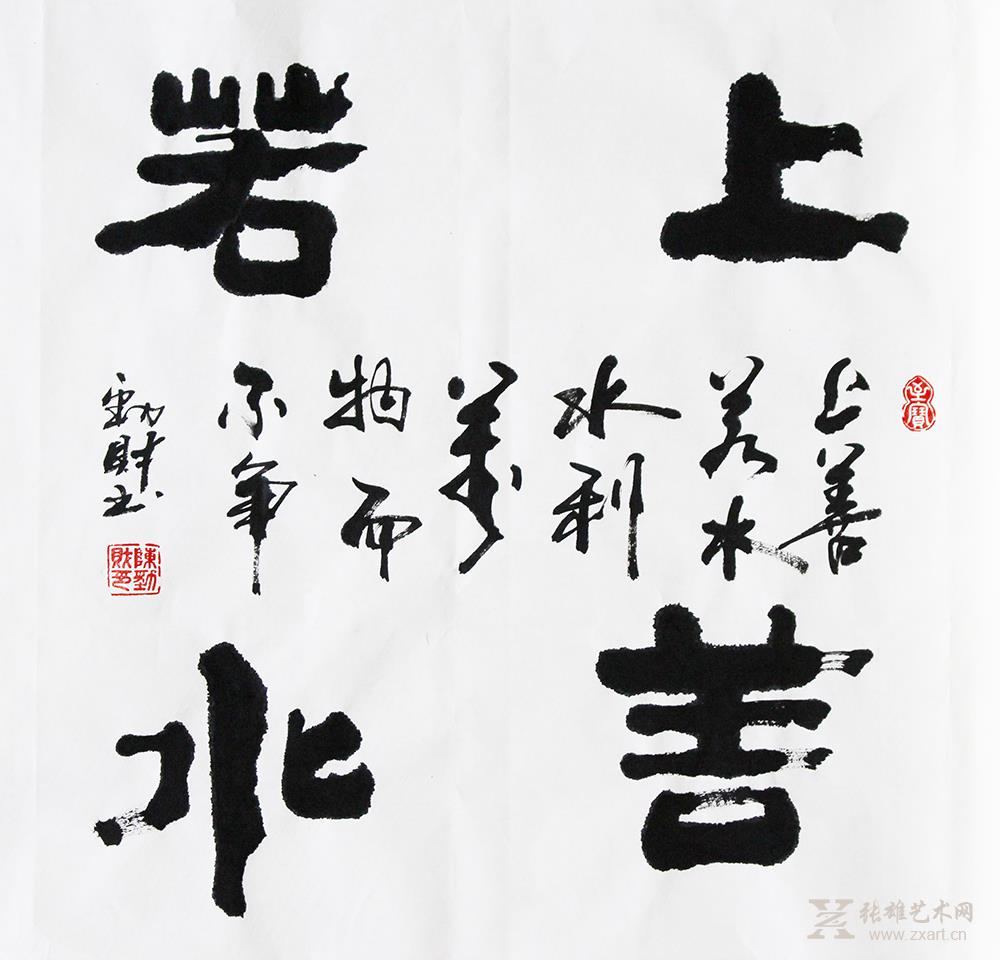 上善
若水
上善
若水
水利
萬
物而
不争
勁財书
至寶
陳勁財印
张雄艺术网
www.zxart.cn